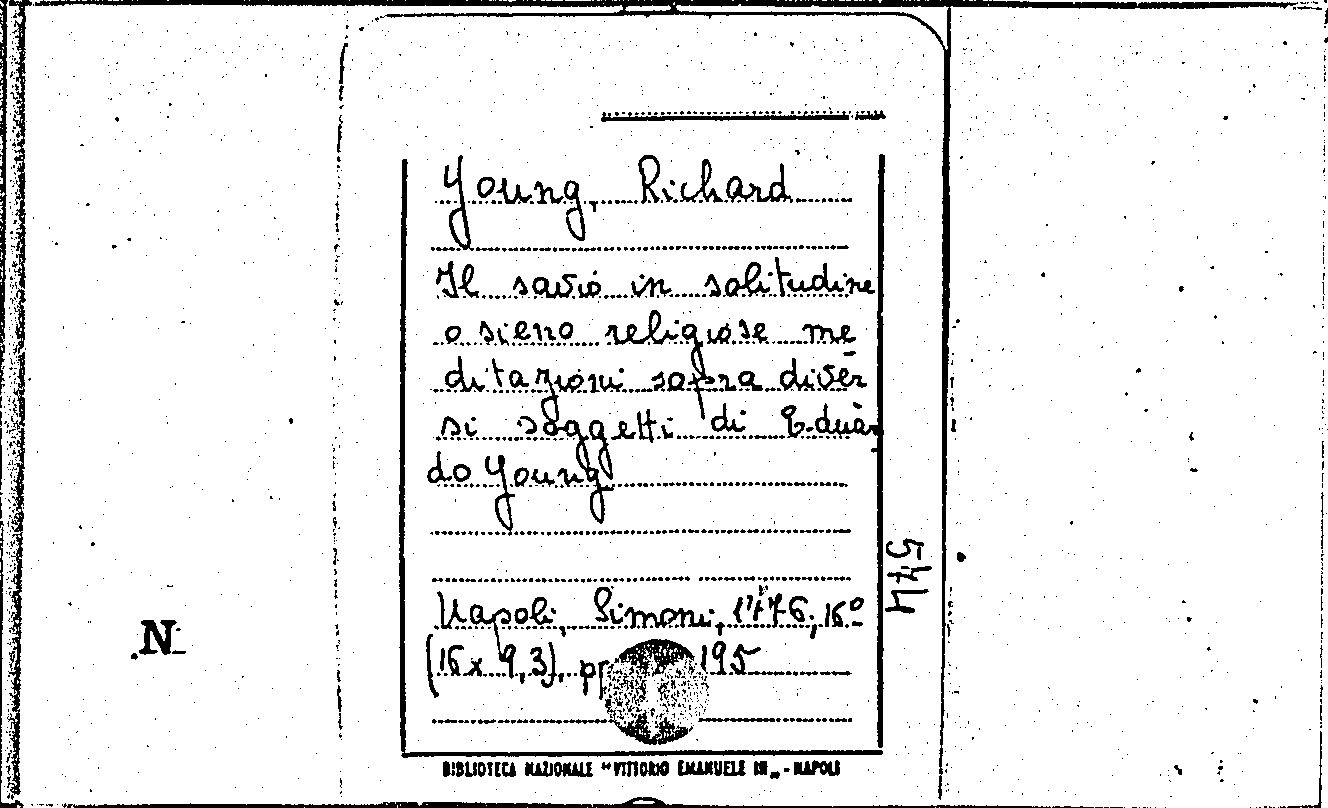 Young, Richard
Il savio in solitudine
o sieno religiose me
ditazioni sopra diver
si soggetti di Eduar
do Young
Napoli, Simoni, 1776, 16º
(16 x 9,3). pp 195
544
N
BIBLIOTECA NAZIONALE "VITTORIO EMANUELE III„ - NAPOLI